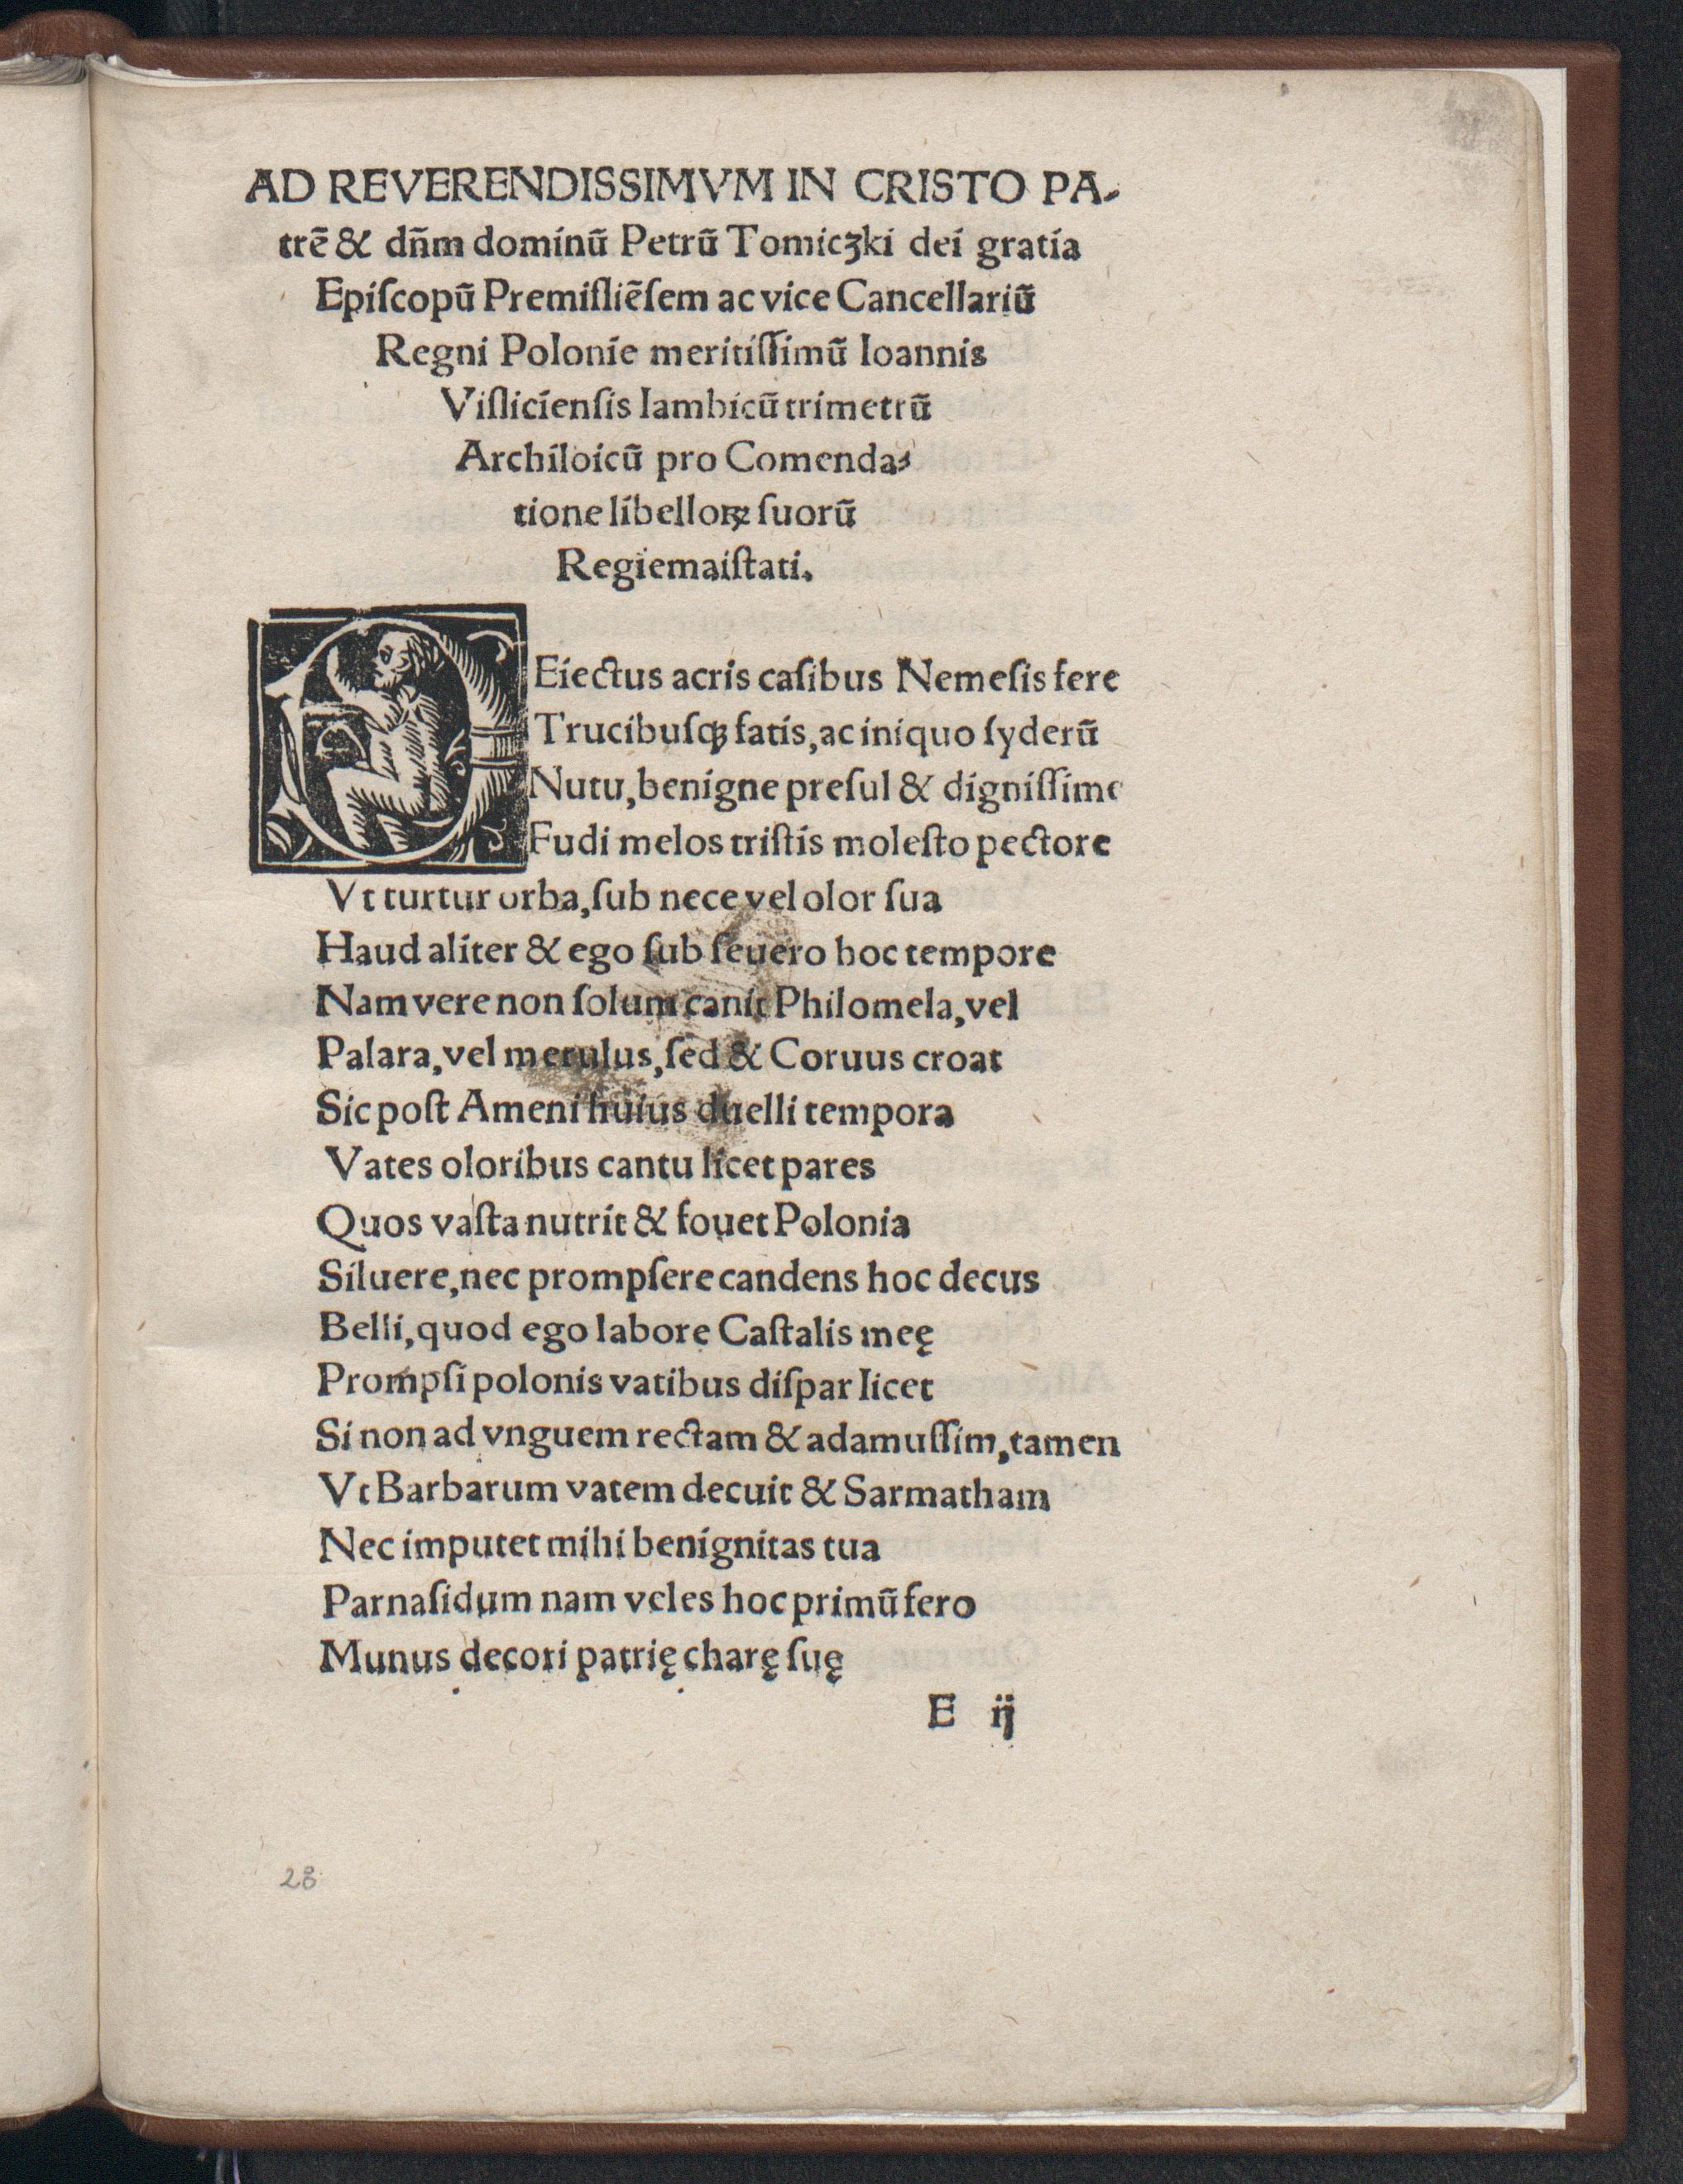 AD REVERENDISSIMVM IN CRISTO PA-
trē & dn̄m dominū Petrū Tomicʒki dei gratia
Epiſcopū Premiſliēſem ac vice Cancellariū
Regni Polonie meritiſſimū Ioannis
Viſlicienſis Iambicū trimetrū
Archiloicū pro Comenda-
tione libelloꝝ ſuorū
Regiemaiſtati.
DEiectus acris caſibus Nemeſis fere
Trucibuſqꝫ fatis, ac iniquo ſyderū
Nutu, benigne preſul & digniſſime
Fudi melos triſtis moleſto pectore
Vt turtur orba, ſub nece vel olor ſua
Haud aliter & ego ſub ſeuero hoc tempore
Nam vere non ſolum canit Philomela, vel
Palara, vel merulus, ſed & Coruus croat
Sic poſt Ameni huius duelli tempora
Vates oloribus cantu licet pares
Quos vaſta nutrit & fouet Polonia
Siluere, nec prompſere candens hoc decus
Belli, quod ego labore Caſtalis meę
Prompſi polonis vatibus diſpar licet
Si non ad vnguem rectam & adamuſſim, tamen
Vt Barbarum vatem decuit & Sarmatham
Nec imputet mihi benignitas tua
Parnaſidum nam veles hoc primū fero
Munus decori patrię charę ſuę
E ij
28